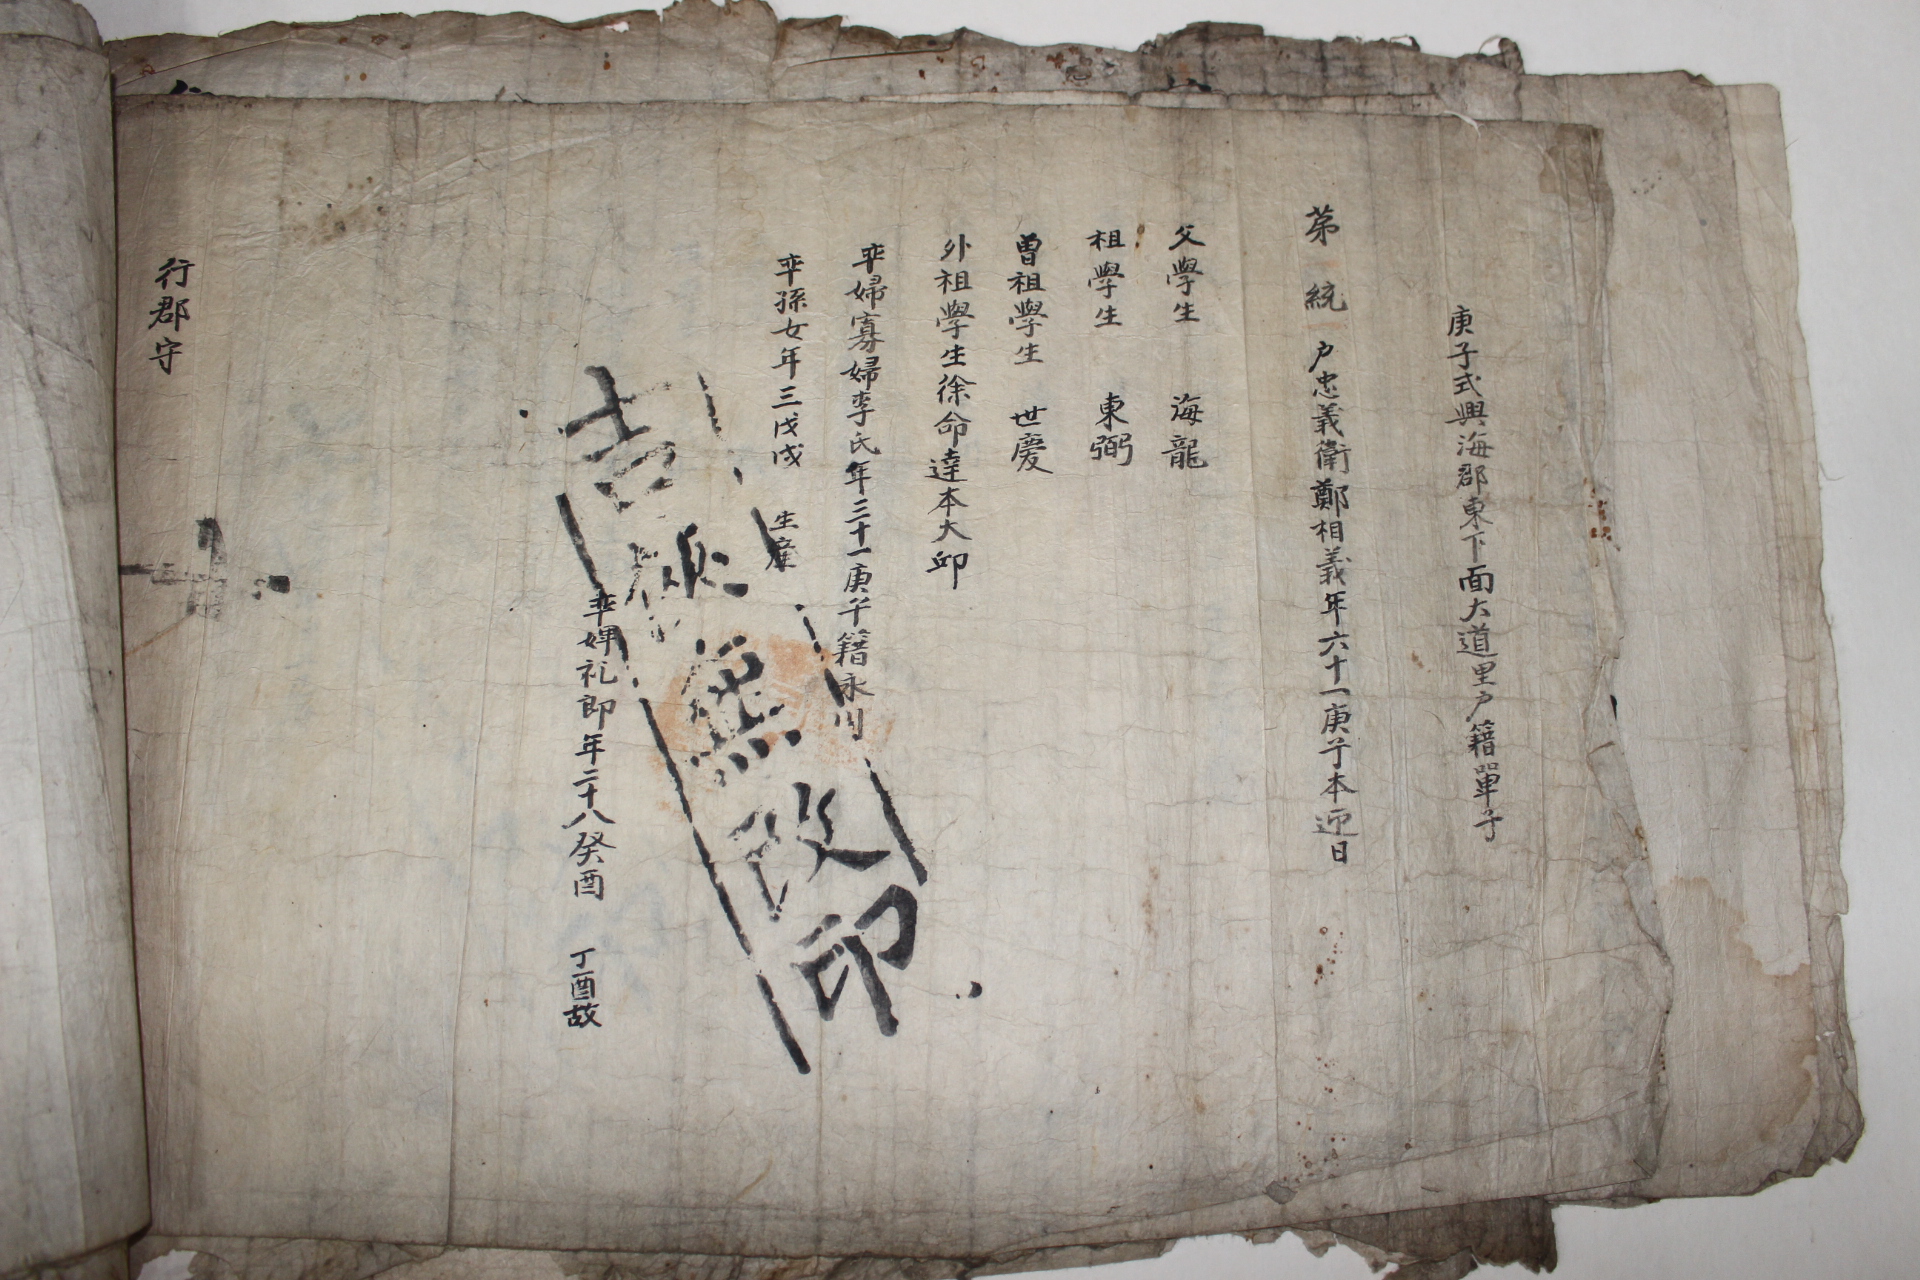 庚子式興海郡東下面大道里戶籍單子
苐 統 戶忠義衛鄭相義年六十一庚子本迎日
父學生 海龍
祖學生 東弼
曾祖學生 世慶
外祖學生徐命達本大邱
率婦寡婦李氏年三十一庚午籍永川
率孫女年三戊戌 生産
率婢礼郎年二十八癸酉 丁酉故
無改印
行郡守